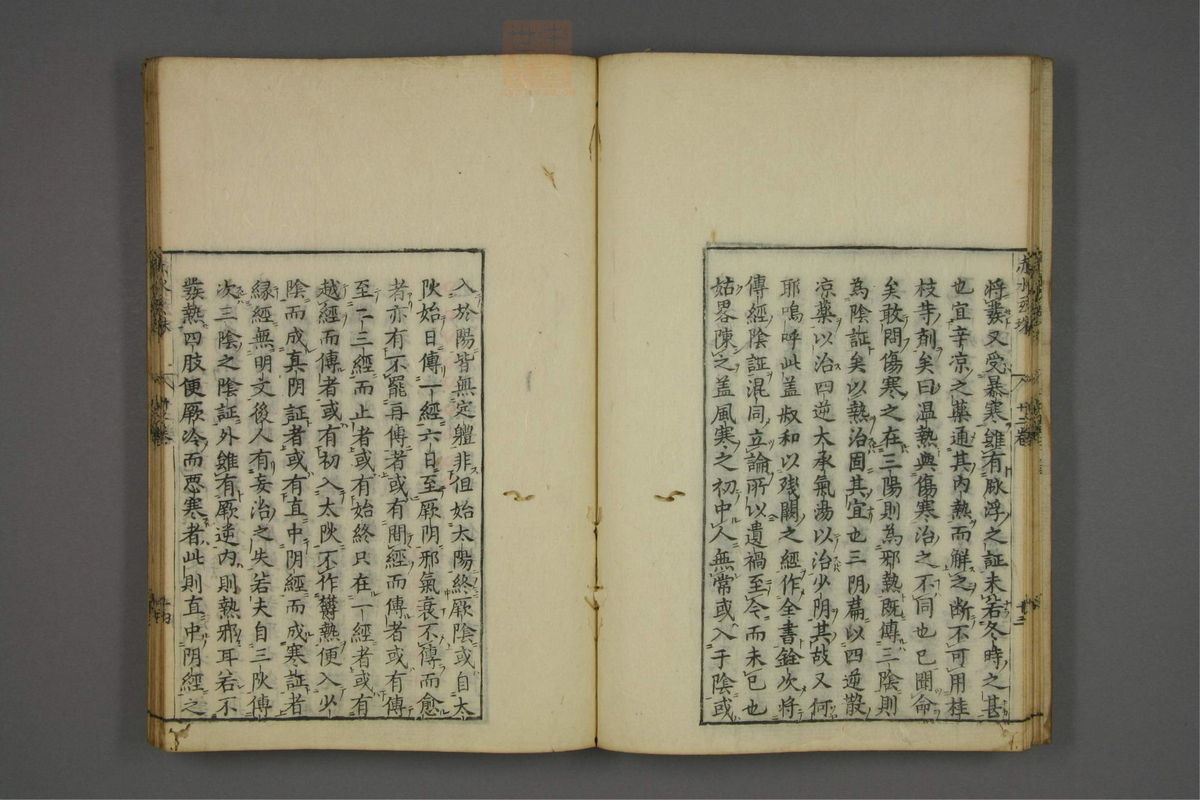 將發又受暴寒雖有脉浮之証未若冬時之甚
也宜辛凉之藥通其内熱而解之断不可用桂
枝等剤矣曰温熱與傷寒治之不同也已聞命
矣敢問傷寒之在三陽則為邪熱既傳三陰則
為陰証矣以熱治固其宜也三阴篇以四逆散
凉藥以治四逆大承氣湯以治少阴其故又何
耶嗚呼此盖叔和以殘闕之經作全書銓次將
傳經陰証混同立論所以遺禍至今而未已也
姑畧陳之盖風寒之初中人無常或入于陰或
入於陽皆無定軆非但始太陽終厥陰或自太
阦始日傳一經六日至厥阴邪氣衰不傳而愈
者亦有不罷再傳者或有間經而傳者或有傳
至二三經而止者或有始終只在一經者或有
越經而傳者或有初入太阦不作欝熱便入少
陰而成真阴証者或有直中阴經而成寒証者
縁經無明文後人有妄治之失若夫自三阦傳
次三陰之陰証外雖有厥逆内則熱邪耳若不
發熱四肢便厥冷而悪寒者此則直中阴經之
赤水玄珠
十二卷
廿三